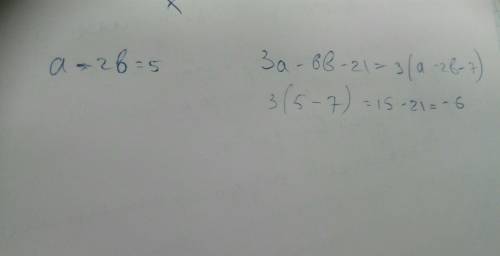 a - 2b = 5
3a - 6b - 21 = 3(a - 2b - 7)
3(5 - 7) = 15 - 21 = -6